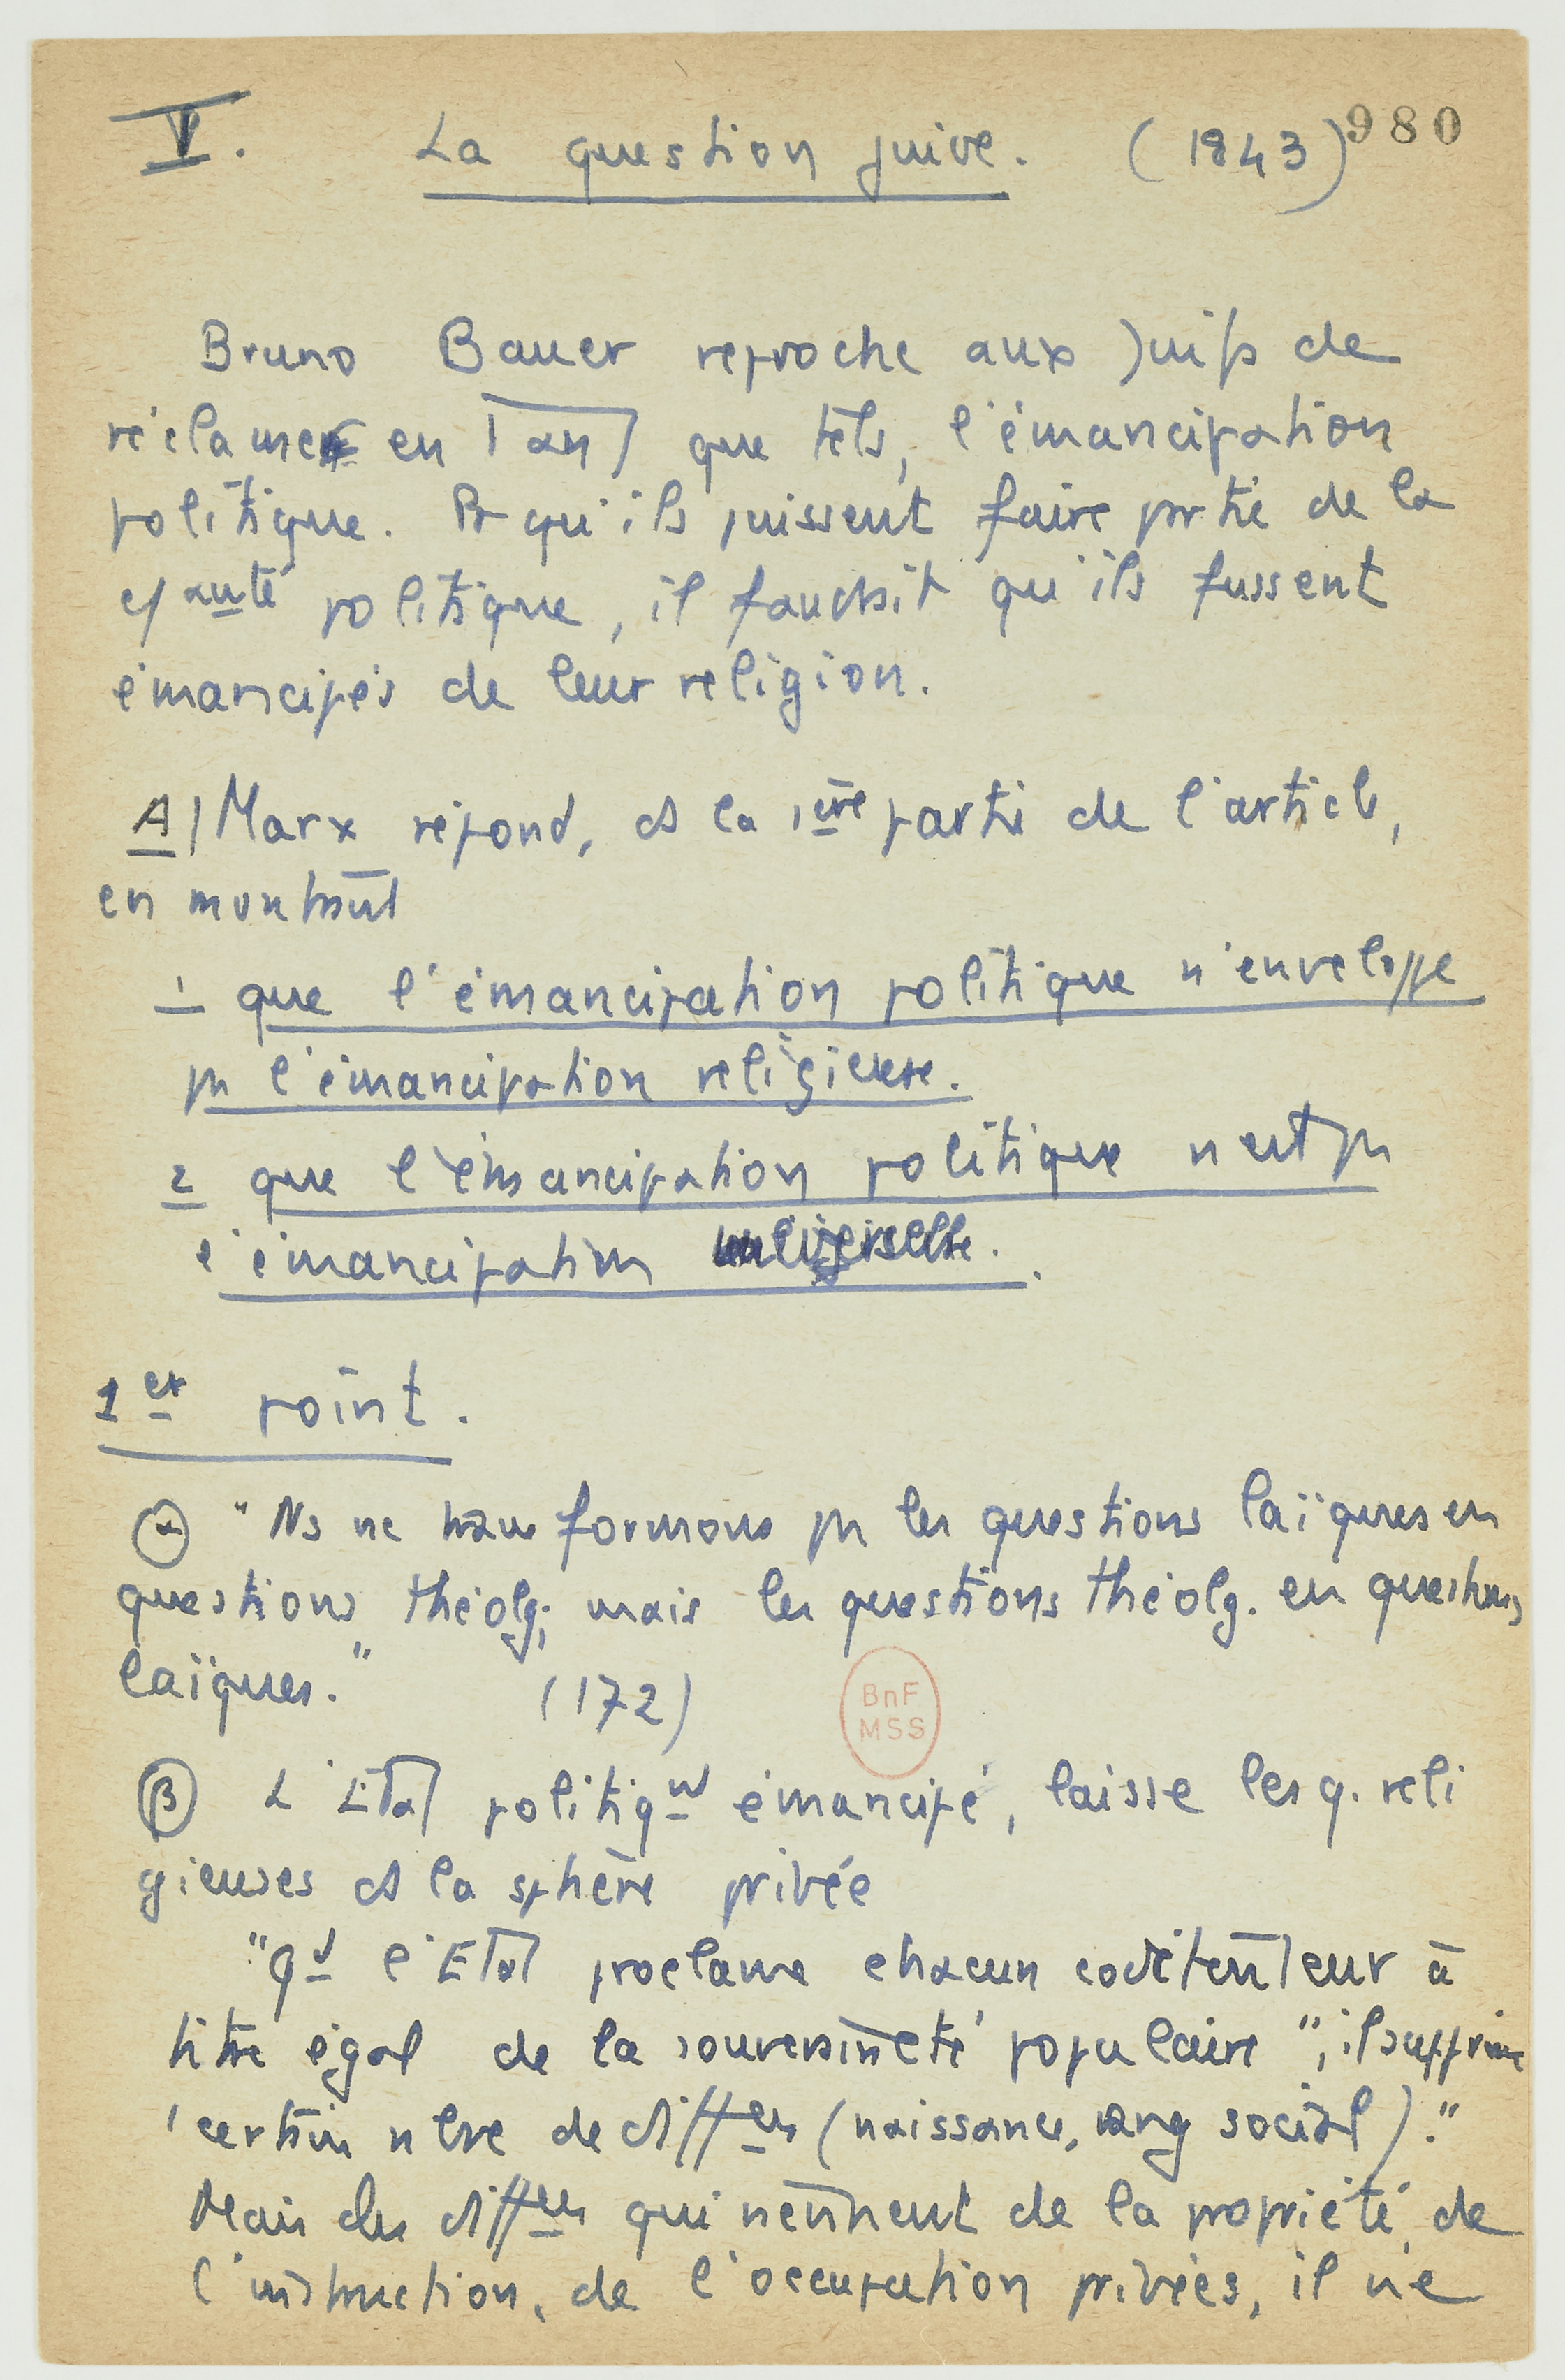 V. La question juive. (1843) 980
Bruno Bauer reproche aux Juifs de
réclamer en Tant que tels, l'émancipation
politique. Pr qu'ils puissent faire prtie de la
c/auté politique, il faudrait qu'ils fussent
émancipés de leur religion.
A/ Marx répond, ds la 1ère partie de l'article,
en montrant
1 que l'émancipation politique n'enveloppe
pas l'émancipation religieuse.
2 que l'émancipation politique n'est pas
l'émancipation universelle.
1er point.
α "Ns ne transformons pas les questions laïques en
questions théolg; mais les questions théolg. en questions
laïques." (172)
BnF
MSS
β L'Etat politiqut émancipé, laisse les q. reli
gieuses ds la sphère privée
"Qd l'Etat proclame chacun codétenteur à
titre égal de la souveraineté populaire", il supprime
1 certain nbre de diffces (naissance, rang social)."
Mais des diffces qui viennent de la propriété, de
l'instruction, de l'occupation privées, il ne